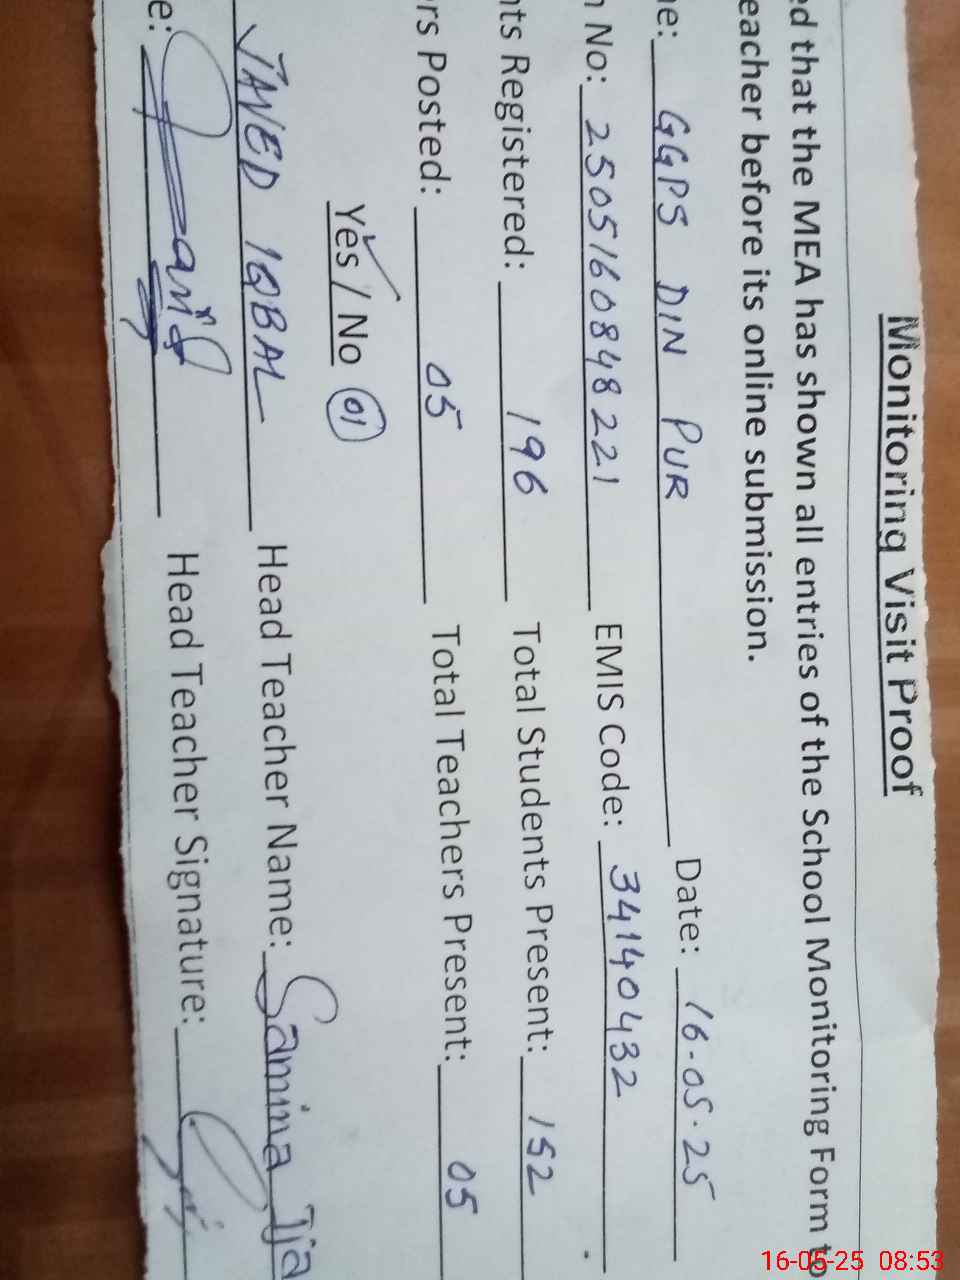 Monitoring Visit Proof
ed that the MEA has shown all entries of the School Monitoring Form to
eacher before its online submission.
ne: GGPS DIN PUR Date: 16-05-25
n No: 250516084822 1 EMIS Code: 34140432
nts Registered: 196 Total Students Present: 152
rs Posted: 05 Total Teachers Present: 05
Yes / No 01
JAVED IQBAL Head Teacher Name: Samina Ija
e: Head Teacher Signature:
16-05-25 08:53